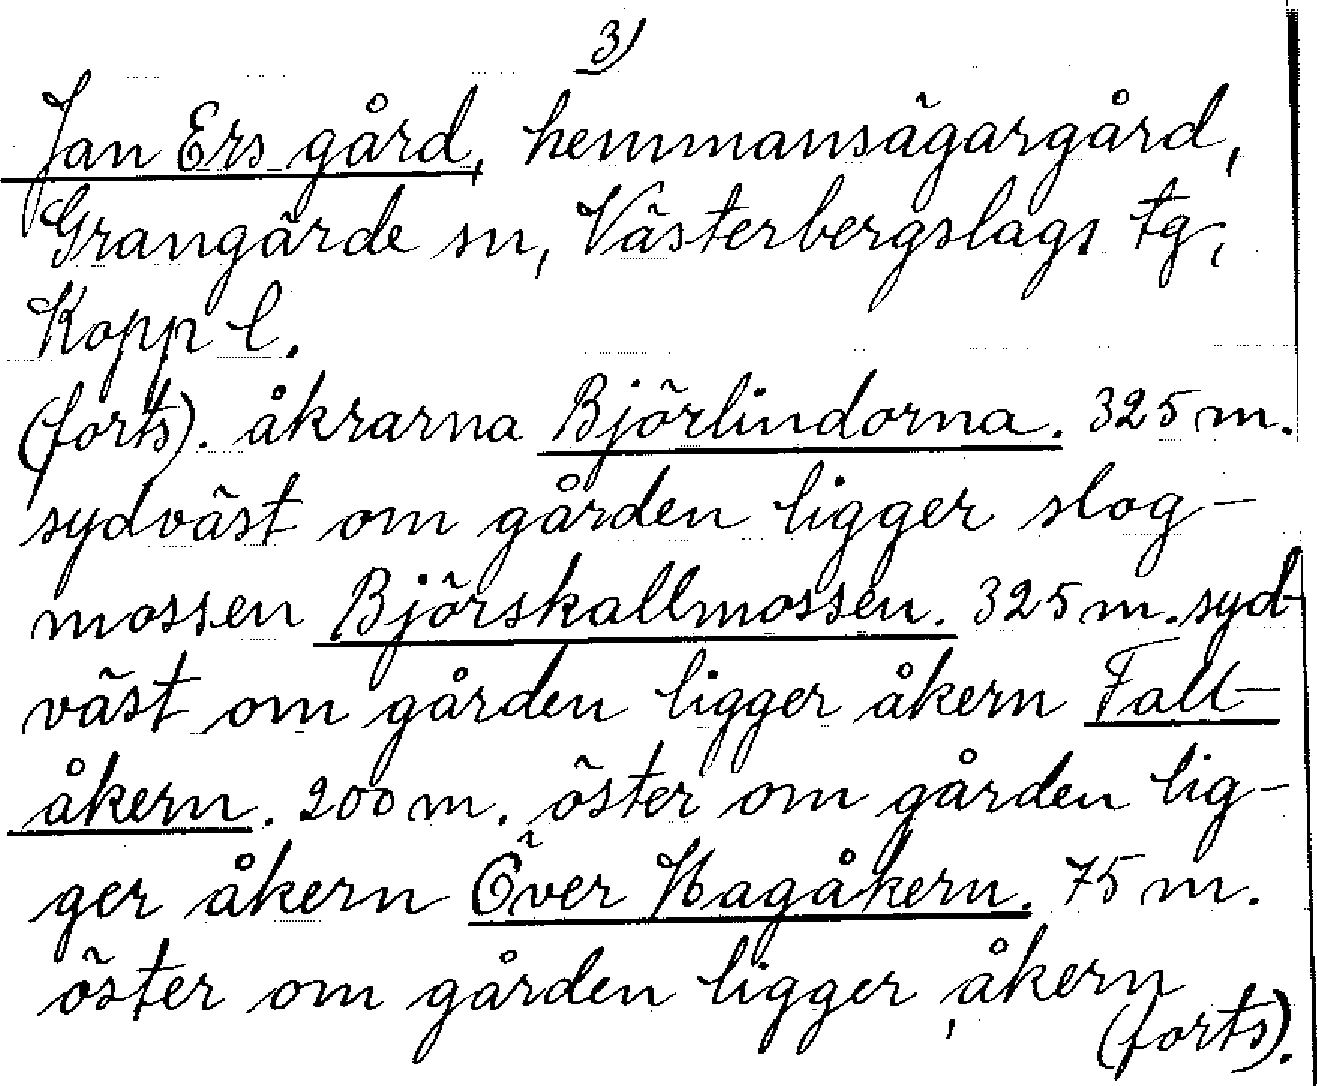 3)
Jan Ers gård, hemmansägargård,
Grangärde sn, Västerbergslags tg,
Kopp l.
(forts). åkrarna Björlindorna. 325 m.
sydväst om gården ligger slog-
mossen Björskallmossen. 325 m. syd-
väst om gården ligger åkern Fall-
åkern. 200 m. öster om gården lig-
ger åkern Över Hagåkern. 75 m.
öster om gården ligger åkern
(forts).